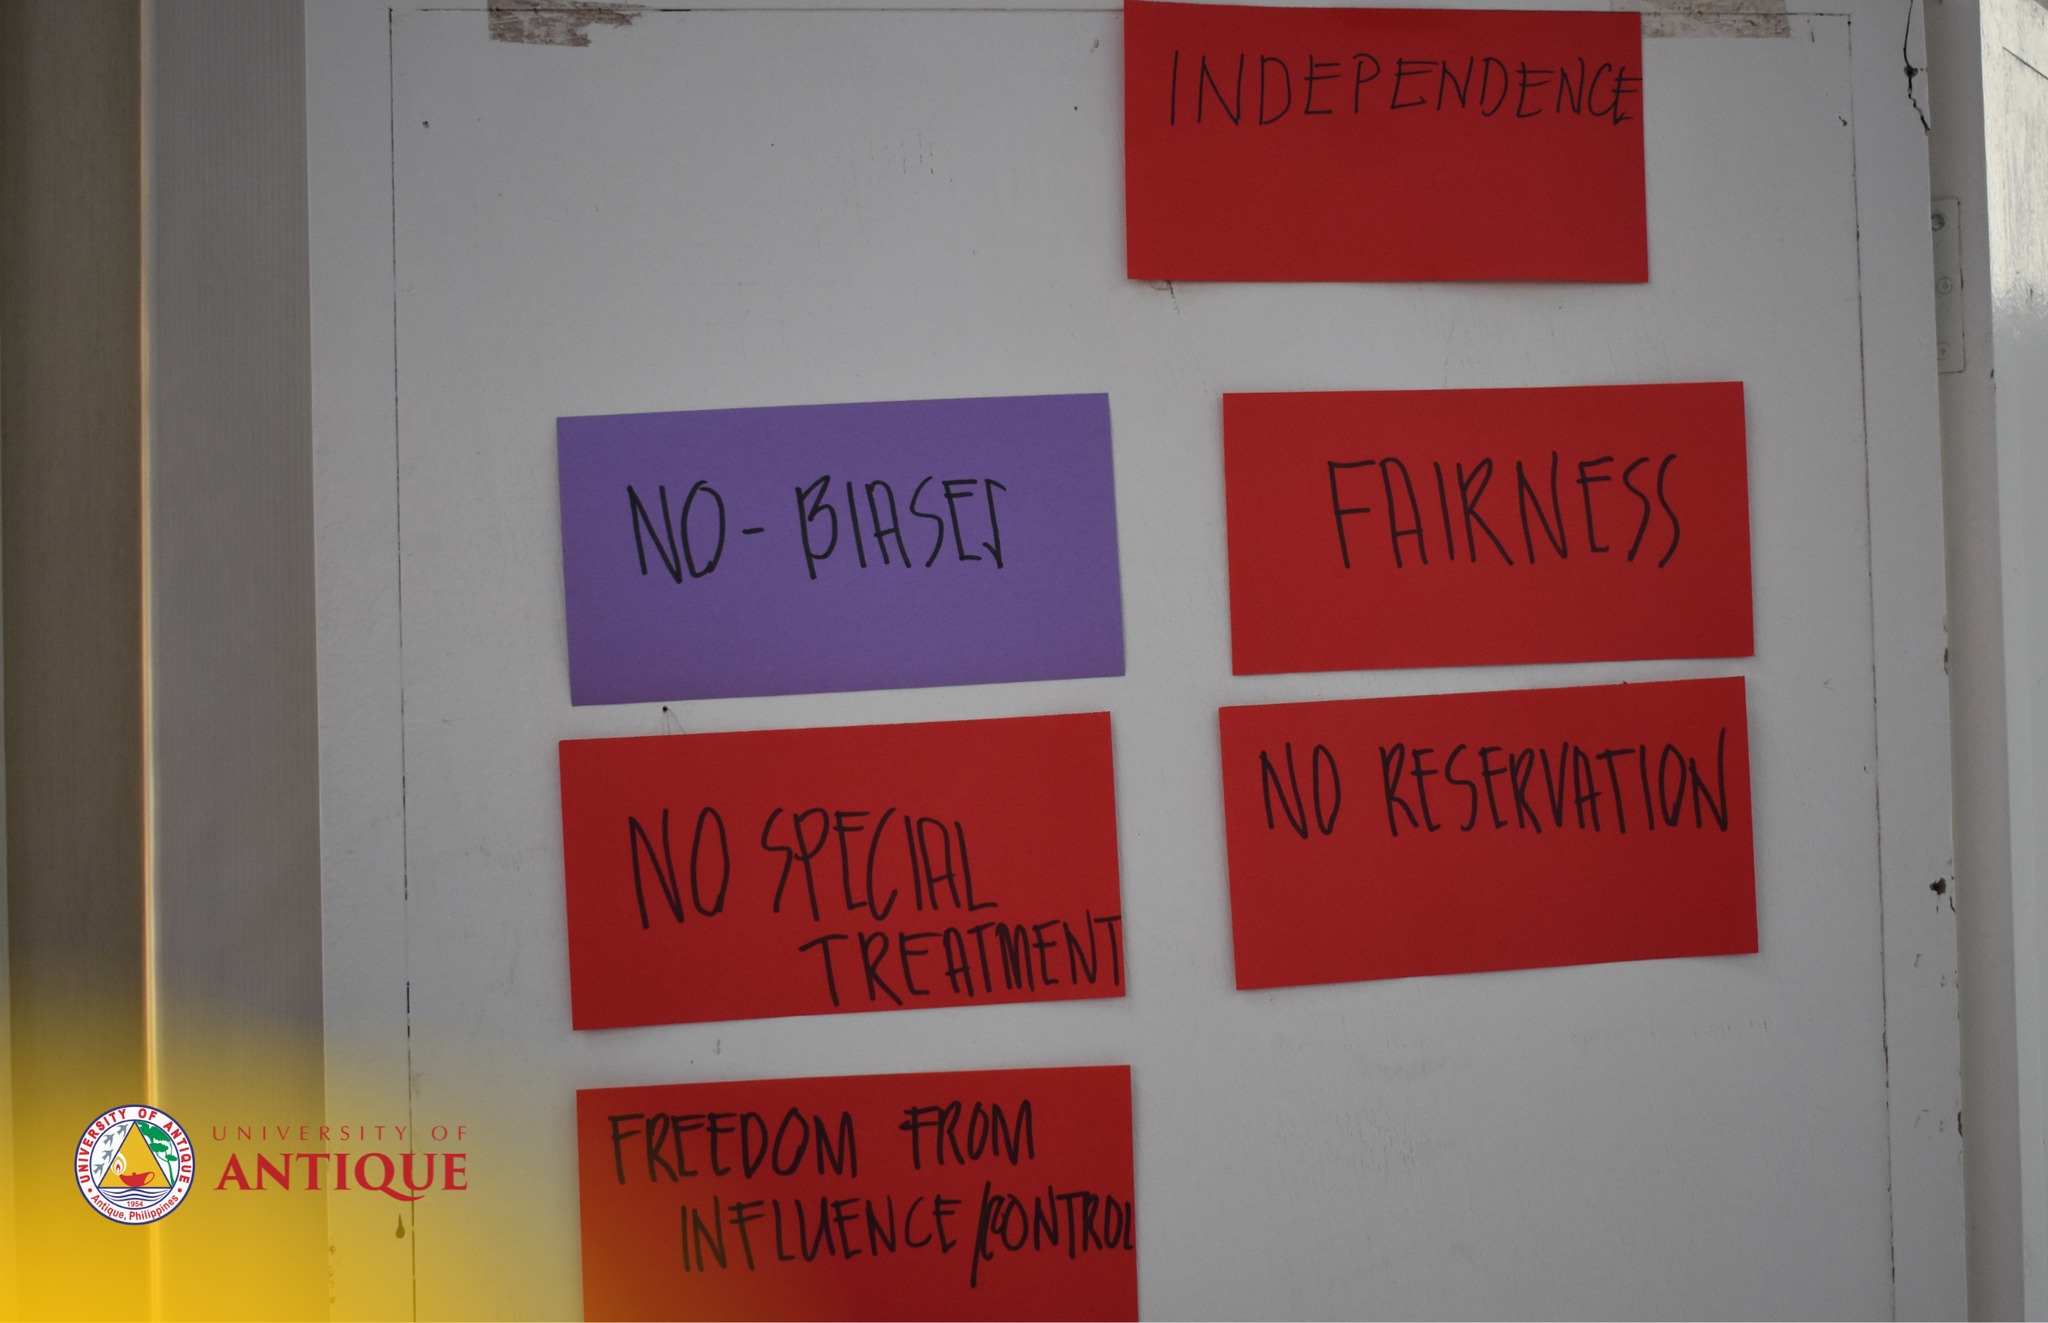 INDEPENDENCE
NO-BIASES
FAIRNESS
NO SPECIAL
TREATMENT
NO RESERVATION
FREEDOM FROM
INFLUENCE/CONTROL
UNIVERSITY OF ANTIQUE
1954
Antique, Philippines
UNIVERSITY OF
ANTIQUE